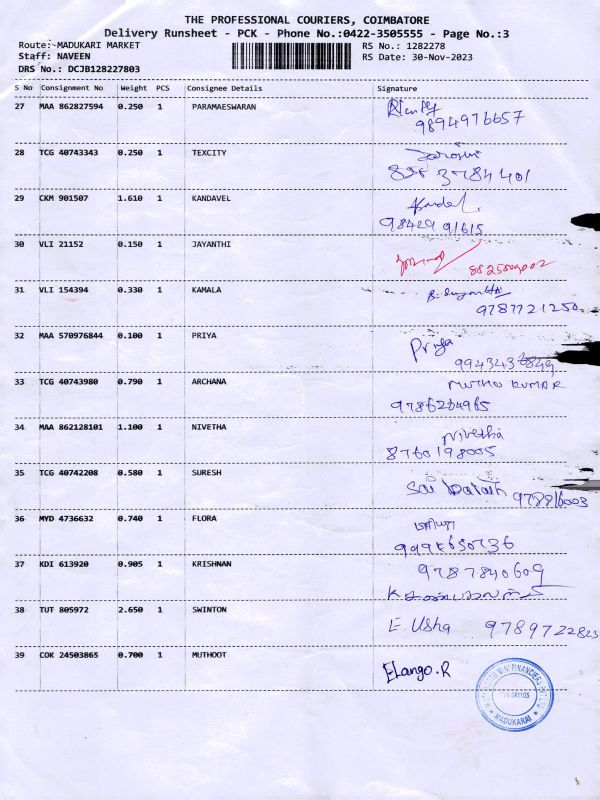 THE PROFESSIONAL COURIERS, COIMBATORE
Delivery Runsheet - PCK - Phone No.:0422-3505555 - Page No.:3
Route:-MADUKARI MARKET
RS No.: 1282278
Staff: NAVEEN
RS Date: 30-Nov-2023
DRS No.: DCJB128227803
S No Consignment No Weight PCS Consignee Details Signature
27 MAA 862827594 0.250 1 PARAMAESWARAN
9894976657
28 TCG 40743343 0.250 1 TEXCITY
29 CKM 901507 1.610 1 KANDAVEL
98429 91615
30 VLI 21152 0.150 1 JAYANTHI
31 VLI 154394 0.330 1 KAMALA
9787721250
32 MAA 570976844 0.100 1 PRIYA
Priya
33 TCG 40743980 0.790 1 ARCHANA
MUTHU KUMAR
9786264965
34 MAA 862128101 1.100 1 NIVETHA
Nivetha
8760198005
35 TCG 40742208 0.580 1 SURESH
Sai
36 MYD 4736632 0.740 1 FLORA
37 KDI 613920 0.905 1 KRISHNAN
9787840609
38 TUT 805972 2.650 1 SWINTON
E. Usha 9789722823
39 COK 24503865 0.700 1 MUTHOOT
Elango.R
MADUKARAI